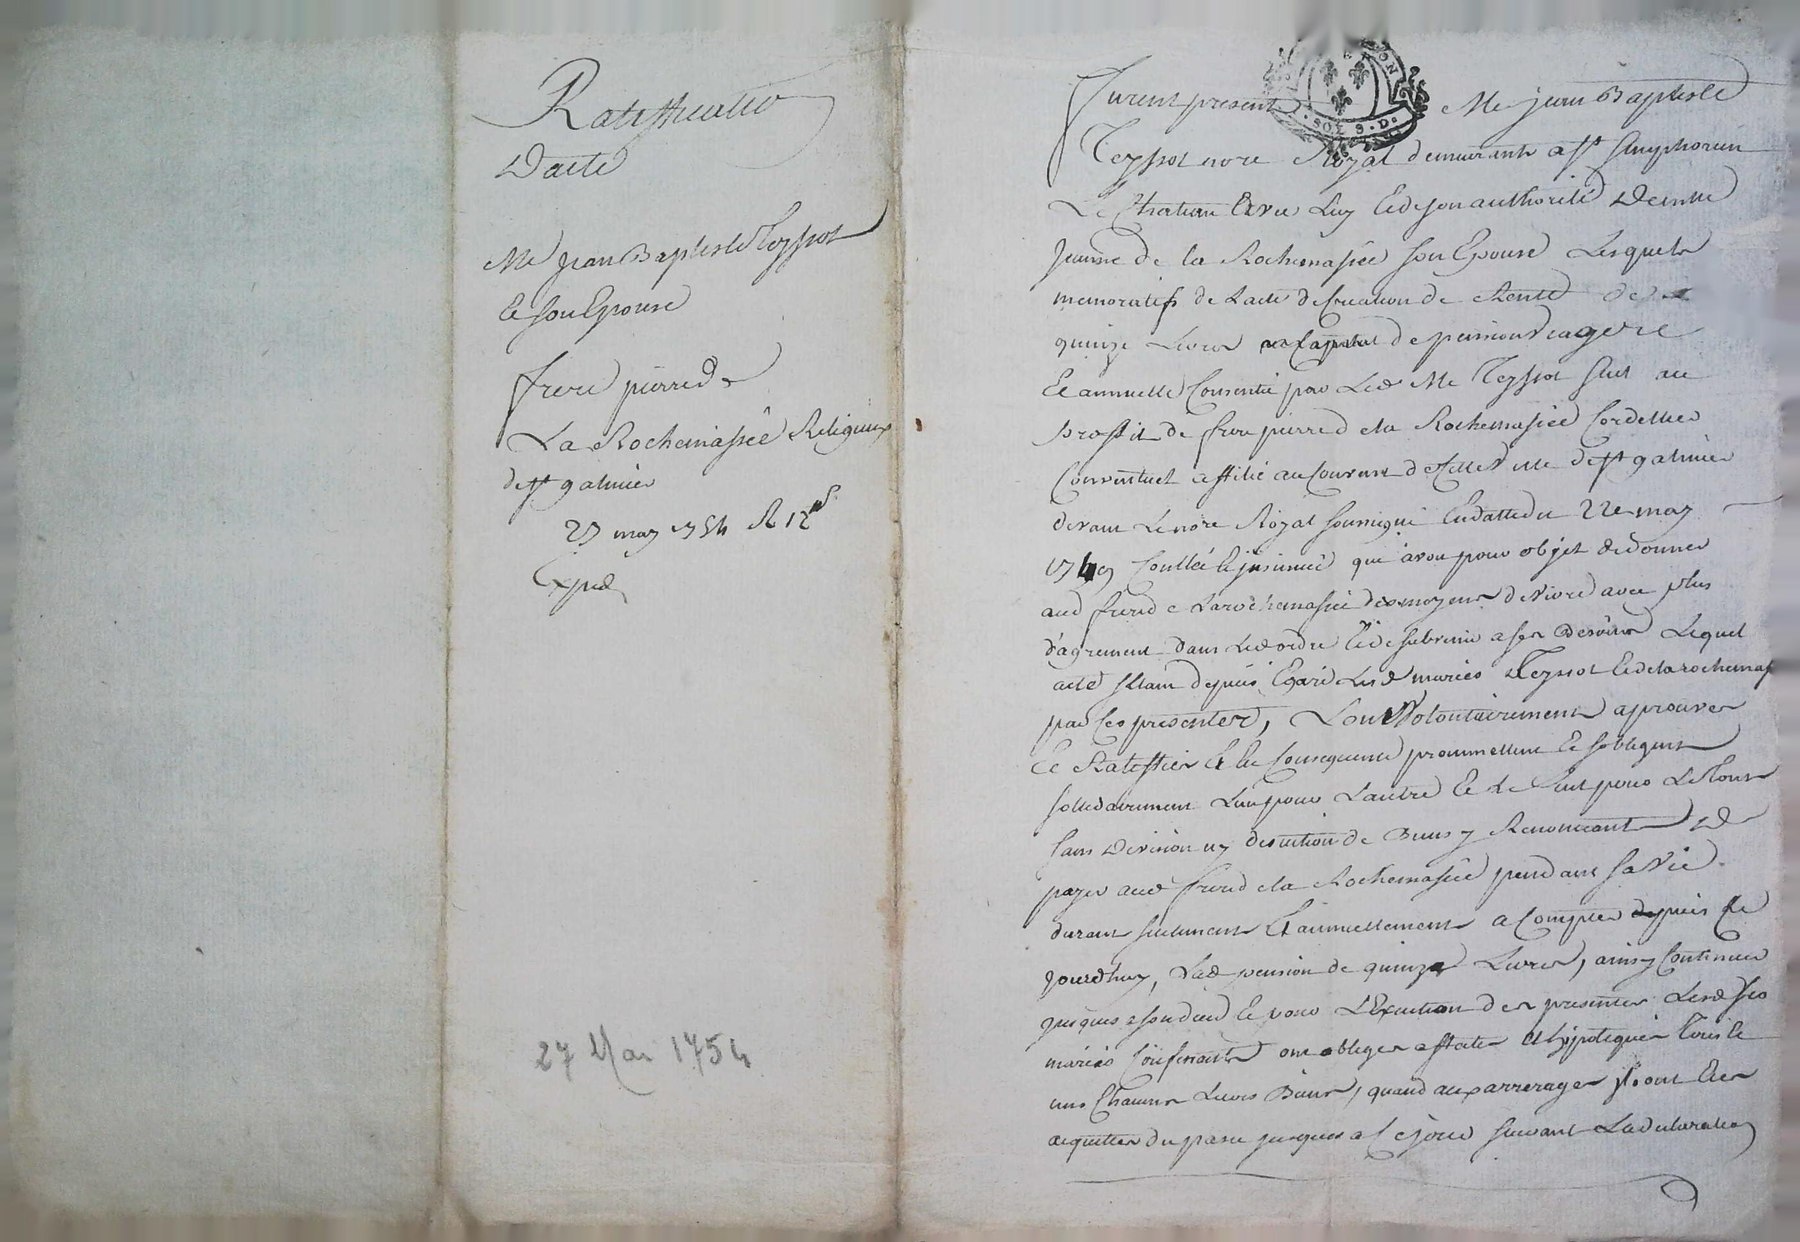 Ratiffication
Dacte
Me Jean Baptiste Teyssot
Et son Epouse
frere pierre de
La Rochemassée Religieux
de st galmier
27 may 1754 R 12 s
Expéd
27 Mai 1754
SOLS. D.
Furent presents Me jean Baptiste
Teyssot nore Royal demeurant a st Simphorien
Le Chateau Et de luy Et de son authorité Demlle
jeanne de la Rochemassée son Epouse Lesquels
memoratifs de Lacte de Creation de Rente de
quinze Livres de pension viagere
Et annuelle Consentie par Led Me Teyssot seul au
proffit de frere pierre de la Rochemassée Cordellier
Conventuel affilié au Couvent de Cette Ville de st galmier
devant Le nore Royal soussigné En datte du 22e may
1749 Conllé Et jnsinué qui avoit pour objet de donner
aud frere de Larochemassée des moyens de vivre avec plus
d'agrement dans Led ordre Et de subvenir a ses besoins Lequel
acte Etant depuis Egaré Lesd mariés Teyssot Et de la rochemas
par Ces presentes, L'ont Volontairement aprouver
Et Ratiffier Et En Consequence promettent Et sobligent
sollidairement Lun pour Lautre Et Le seul pour Le Tout
sans Division ny discution de Biens y Renonceant De
payer aud frere de la Rochemassée pendant sa Vie
durant seulement Et annuellement a Compter depuis Ce
jourdhuy, Lad pension de quinze Livres, ainsy Continuer
jusques a son deces Et pour L'Execution des presentes Lesd
mariés Confinants ont obliger affecter Et hypotequer Tous Et
uns Chacuns Leurs Biens, quand aux arrerages jls ont Eté
acquitter du passé jusques a Ce jour suivant La declaration